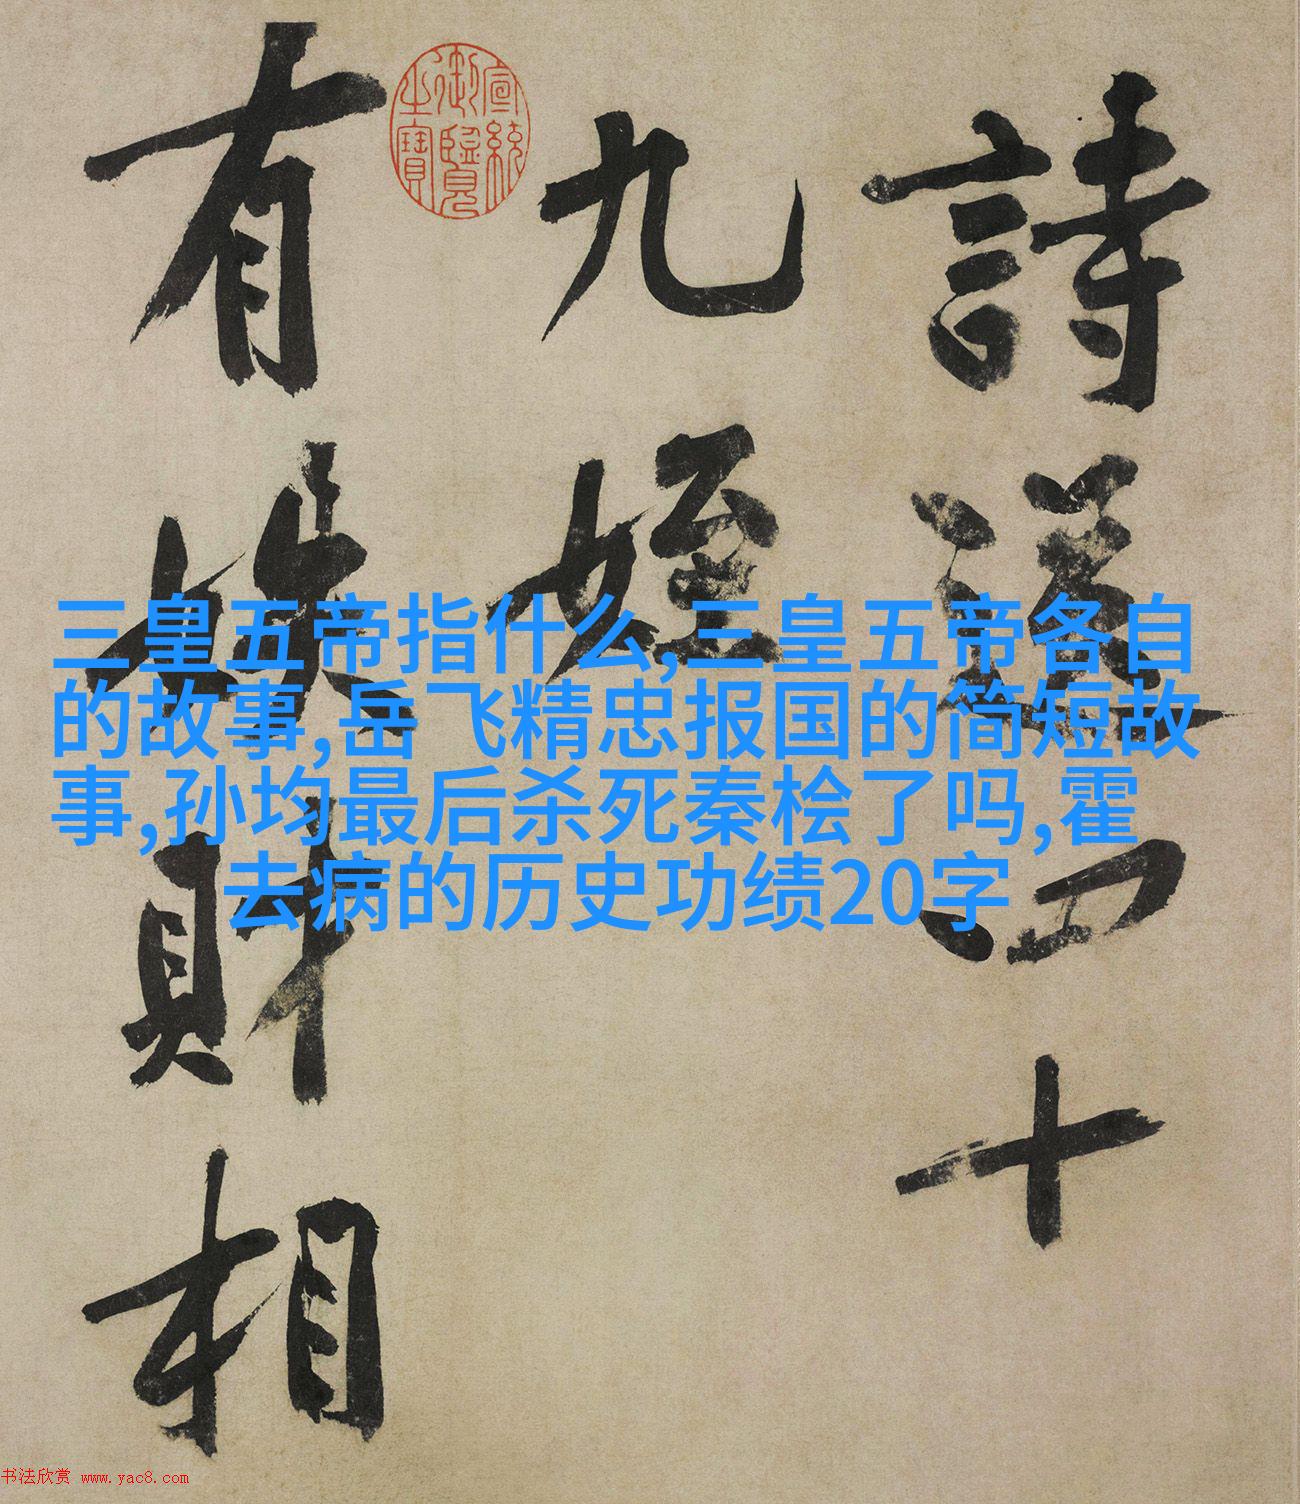 詩送四十
九姪
有
財相
宣統
御覽
之寶
三皇五帝指什么,三皇五帝各自
的故事,岳飞精忠报国的简短故
事,孙均最后杀死秦桧了吗,霍
去病的历史功绩20字
书法欣赏 www.yac8.com